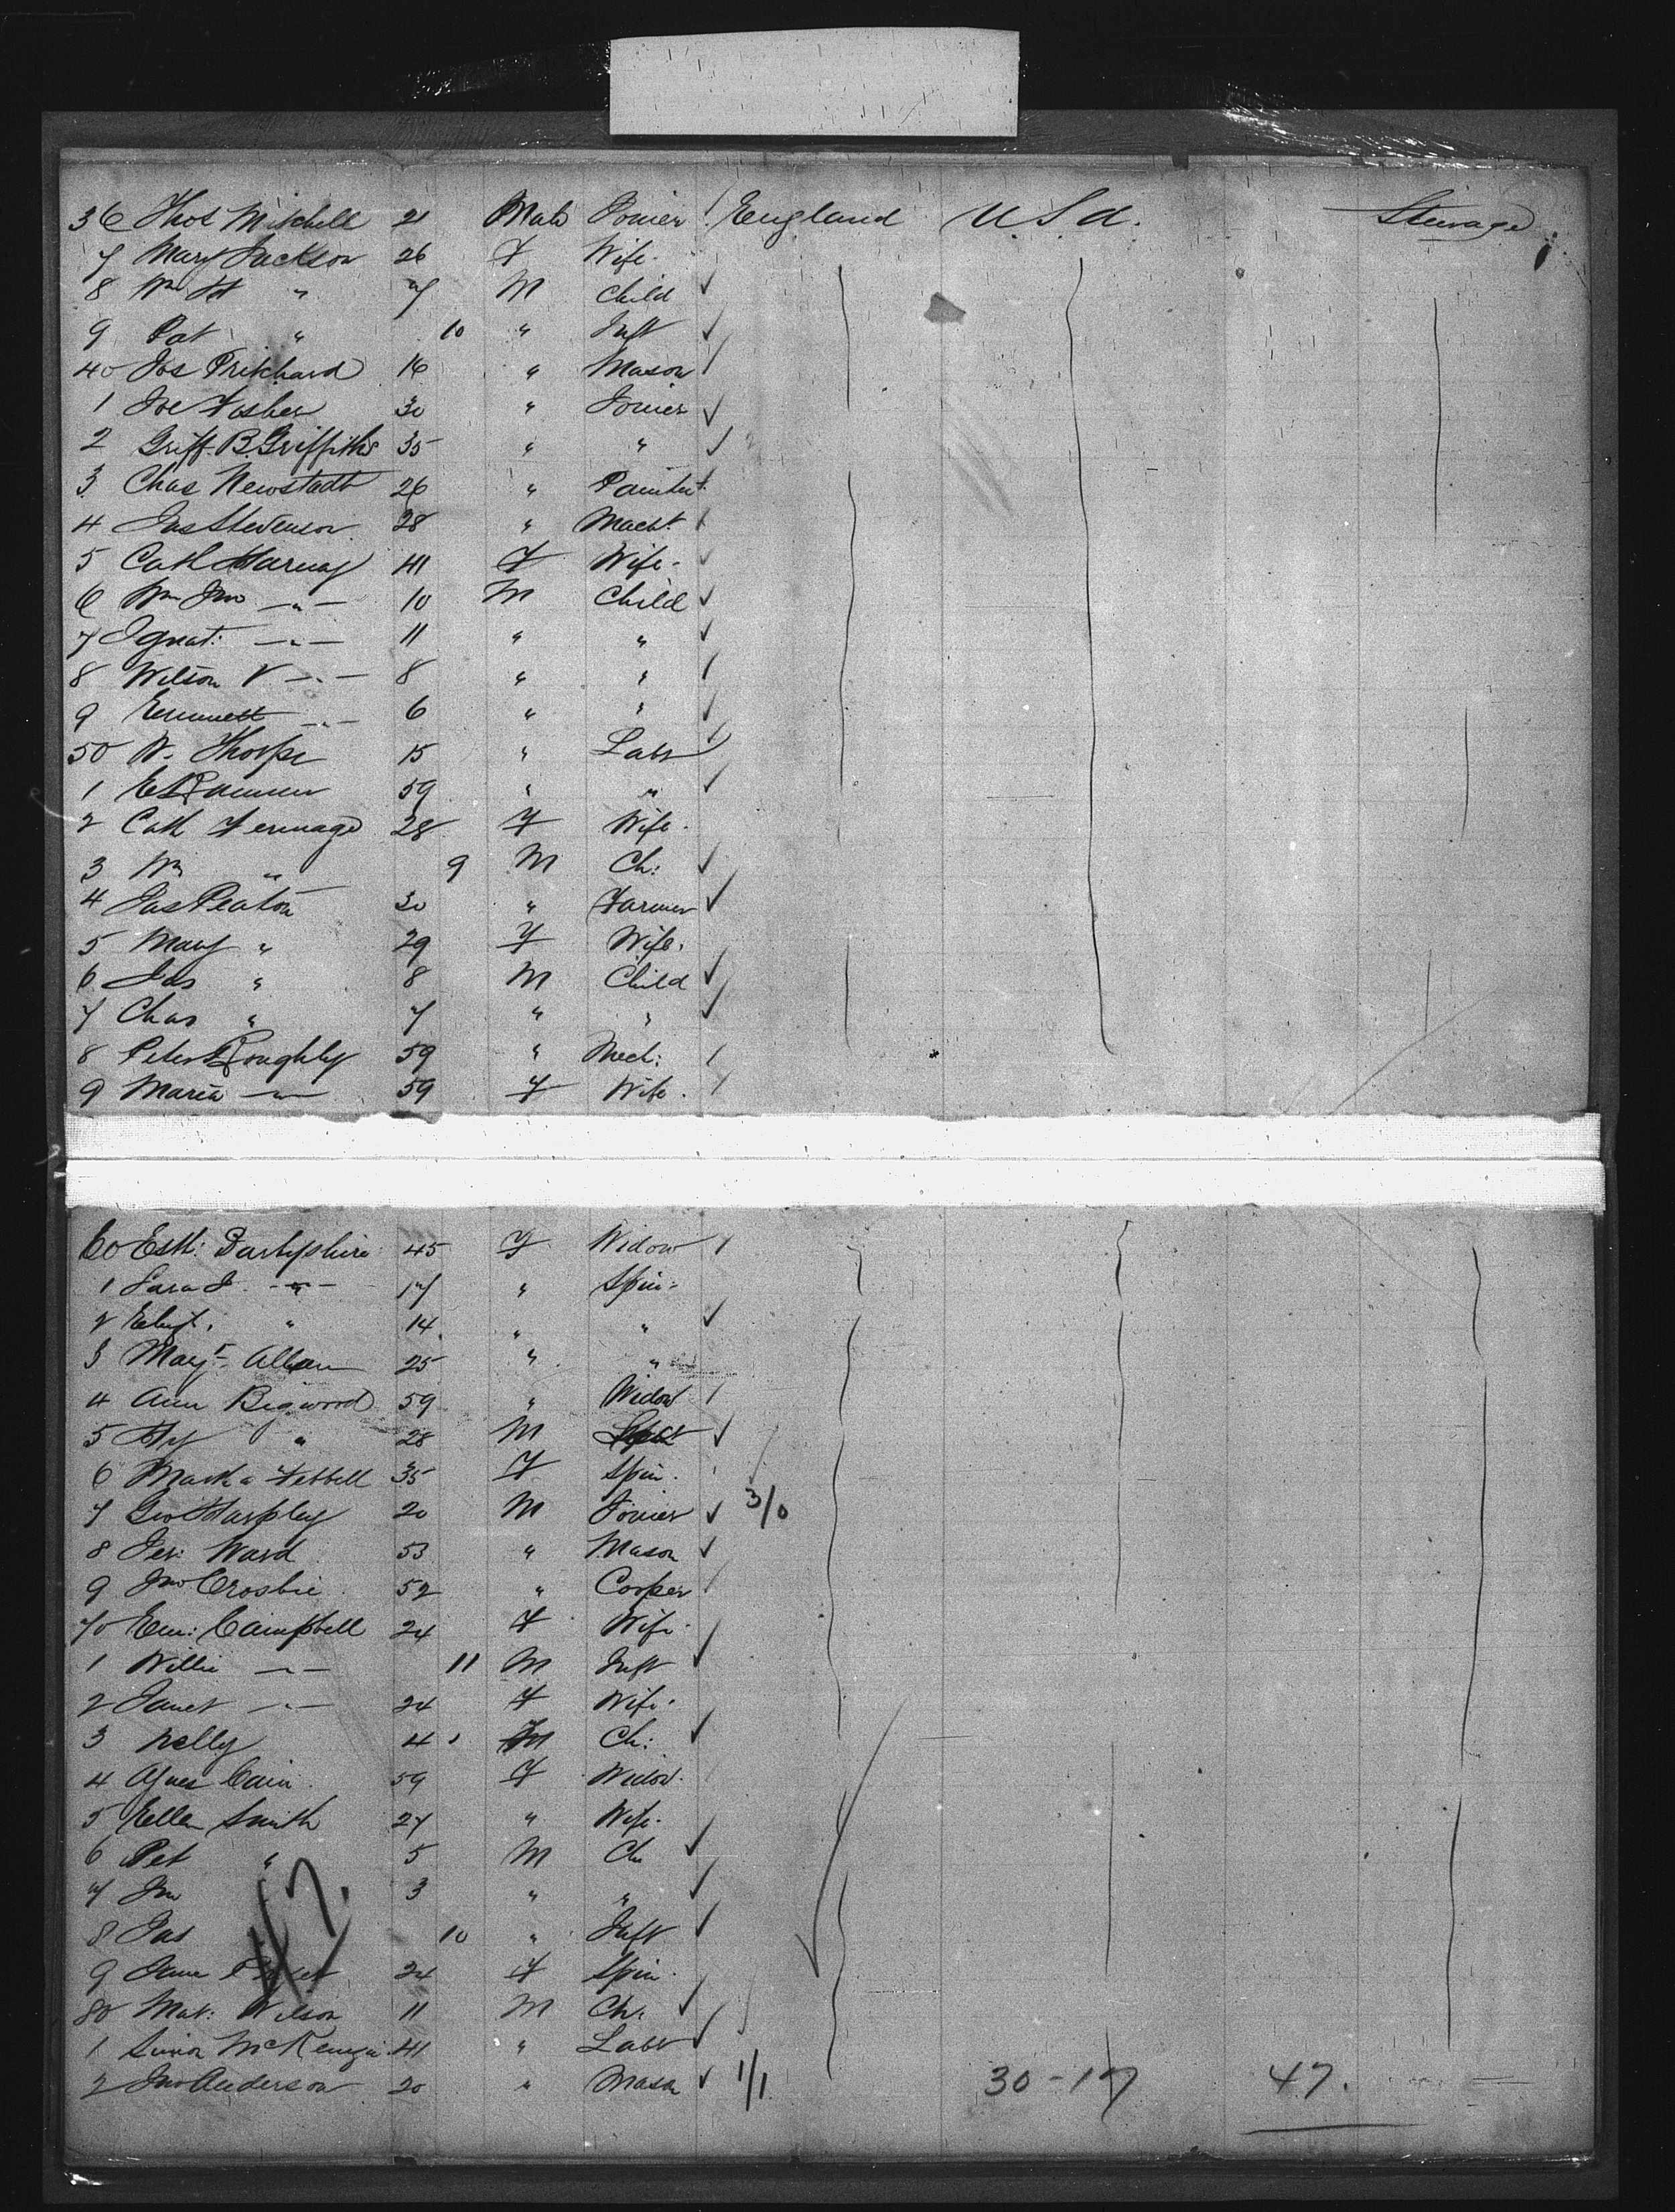 36 Thos Mitchell 21 Male Joiner England U.S.A. Steerage
7 Mary Jackson 26 F Wife
8 Wm H " 7 M Child
9 Pat " 10 " Inft
40 Jos Prikhard 16 " Mason
1 Joe Fosher 30 " Joiner
2 Griff. B. Griffiths 35 " "
3 Chas Newstadt 26 " Painter
4 Jas Stevenson 28 " Macht
5 Cath 41 F Wife
6 Wm Jno " 10 M Child
7 Ignat: " 11 " "
8 Wilson V " 8 " "
9 Emmett " 6 " "
50 W. Thorpe 15 " Labr
1 59 " "
2 Cath 28 F Wife
3 Wm " 9 M Ch:
4 Jas Peaton 30 " Farmer
5 Mary " 29 F Wife
6 Jas " 8 M Child
7 Chas " 7 " "
8 Peter Roughly 59 " Mech:
9 Maria " 59 F Wife
60 Esth: Darbyshire 45 F Widow
1 Sara J. " 17 " Spin:
2 Eliz: " 14 " "
3 Margt Allan 25 " "
4 Ann Bigwood 59 " Widow
5 Hy " 28 M
6 Martha 35 F Spin.
7 Geo Harpley 20 M Joiner 3/0
8 Jer: Ward 53 " Mason
9 Jno Crosbie 52 " Cooper
70 Em: Campbell 24 F Wife
1 Willie " 11 M Inft
2 Janet " 24 F Wife
3 Nelly 4 Ch:
4 Agnes Cain 59 F Widow
5 Ellen Smith 27 " Wife
6 Pet " 5 M Ch
7 Jno 3 " "
8 Jas 10 " Inft
9 Jane 24 F Spin
47.
80 Mat: Wilson 11 M Ch:
1 Simon McKenzie 41 " Labr
2 Jno Anderson 20 " Mason 1/1 30-17 47.